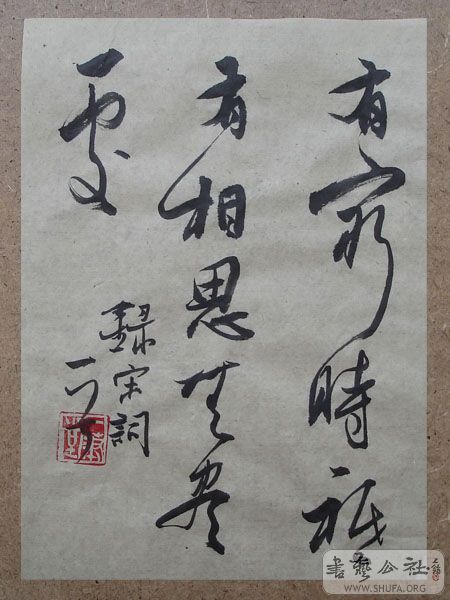 有窮時祇
有相思無盡
處
錄宋詞
書藝公社
WWW.SHUFA.ORG